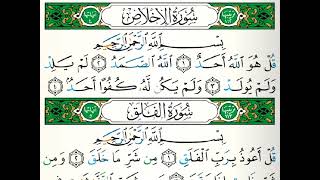 سُورَةُ الْإِخْلَاصِ
بِسْمِ اللَّهِ الرَّحْمَٰنِ الرَّحِيمِ
قُلْ هُوَ اللَّهُ أَحَدٌ ١ اللَّهُ الصَّمَدُ ٢ لَمْ يَلِدْ
وَلَمْ يُولَدْ ٣ وَلَمْ يَكُن لَّهُ كُفُوًا أَحَدٌ ٤
سُورَةُ الْفَلَقِ
بِسْمِ اللَّهِ الرَّحْمَٰنِ الرَّحِيمِ
قُلْ أَعُوذُ بِرَبِّ الْفَلَقِ ١ مِن شَرِّ مَا خَلَقَ ٢ وَمِن